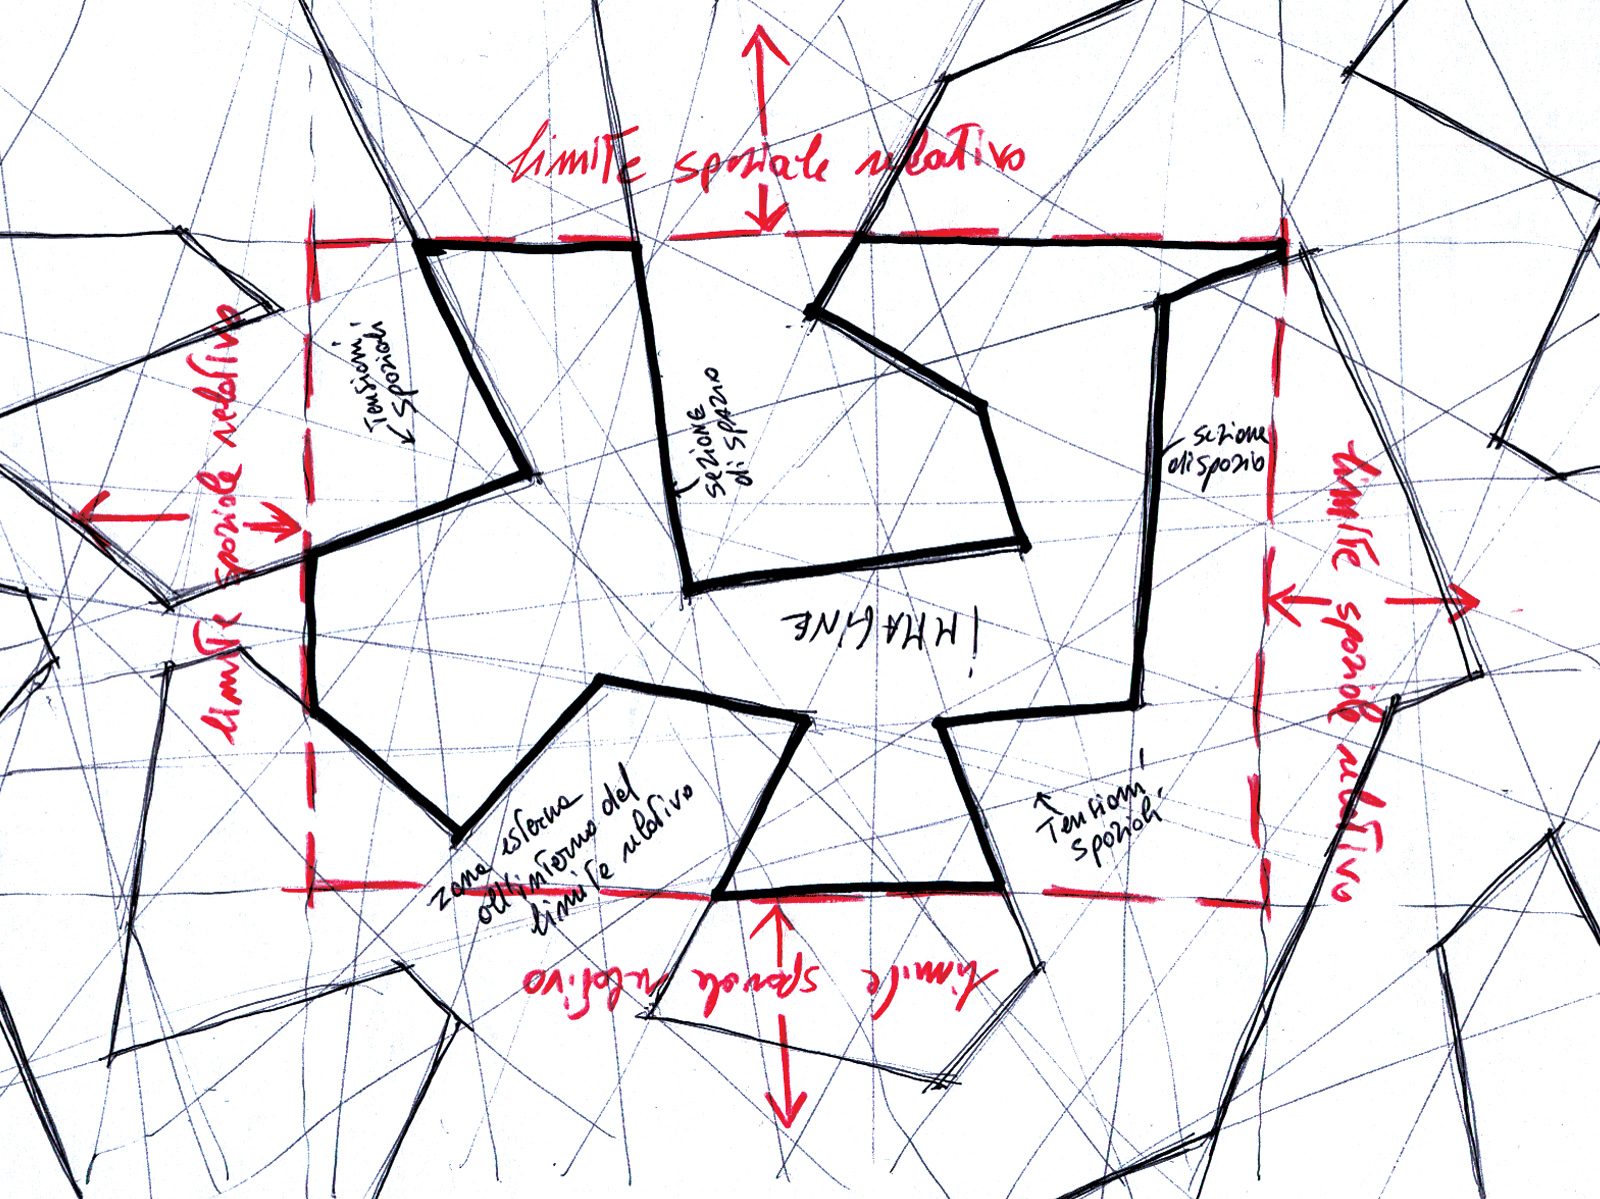 limite spaziale relativo
limite spaziale relativo
Tensioni
spaziali
sezione
di spazio
sezione
di spazio
limite spaziale relativo
immagine
Tensioni
spaziali
zona esterna
all'interno del
limite relativo
limite spaziale relativo